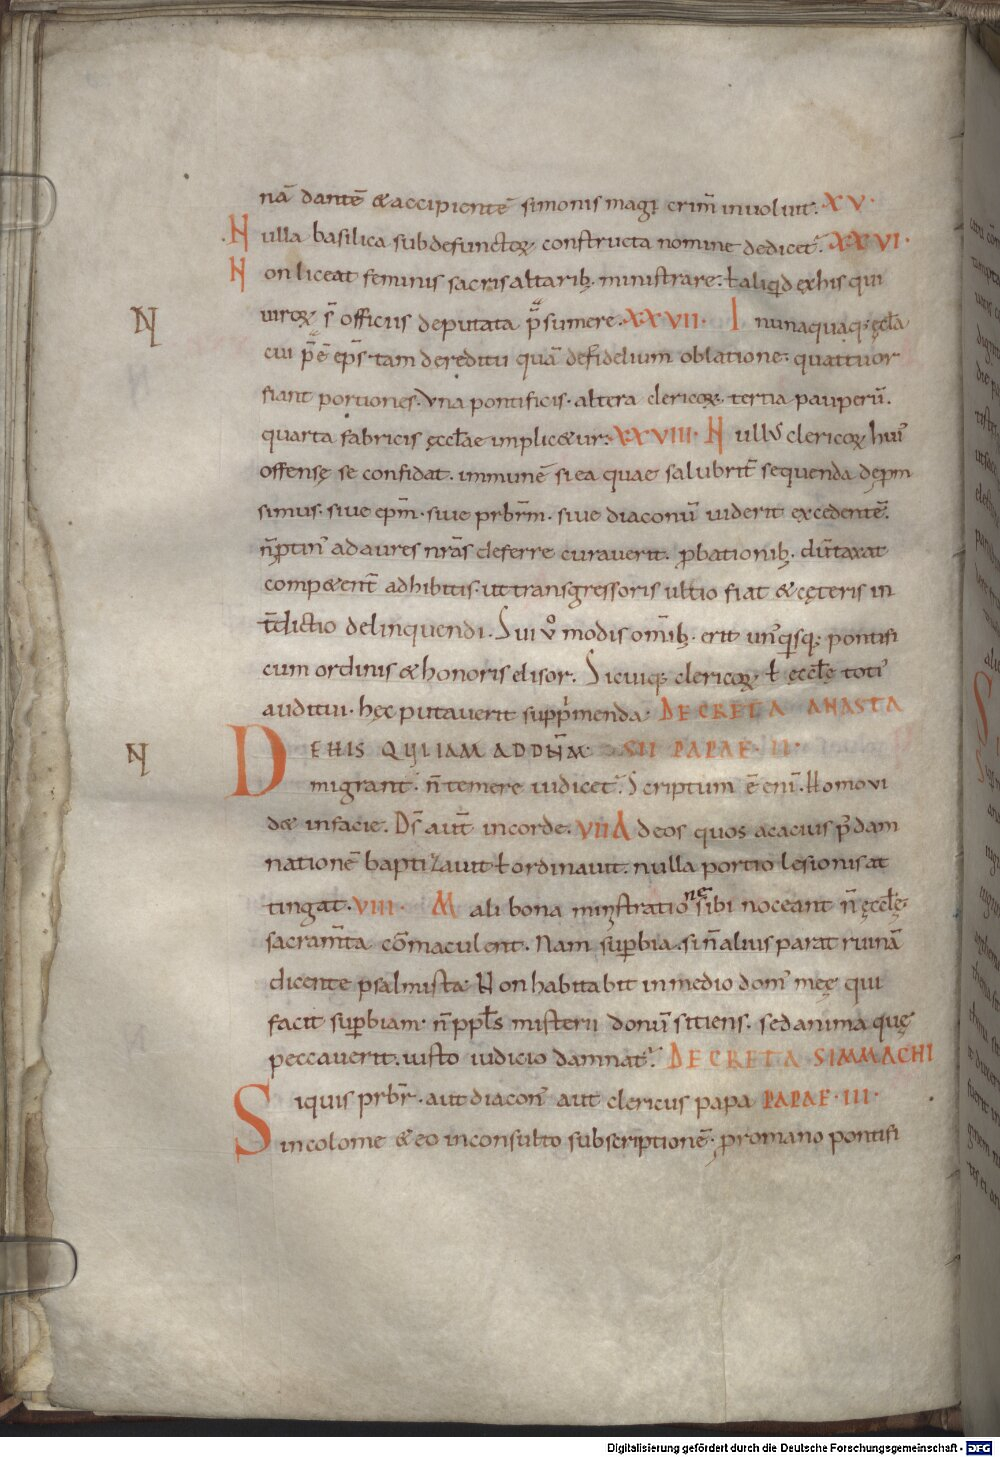 nā dantē &accipientē simonis magi crim̄ inuoluit. XV.
Nulla basilica subdefunctoꝝ constructa nomine dedicet̄. XXVI.
Non liceat feminis sacris altarib; ministrare. ł aliqd exhis qui
uiroꝝ s̄ officiis deputata p̄sumere. XXVII. In unaquaq; ęccła
cui p̄ē ep̄s tam dereditu quā defidelium oblatione. quattuor
fiant portiones. Vna pontificis. altera clericoꝝ. tertia pauperū.
quarta fabricis ęcclae implic&ur. XXVIII. Null' clericoꝝ hui'
offensę se confidat. immunē siea quae salubrit̄ sequenda dep̄m
simus. siue ep̄m. siue prbr̄m. siue diaconū uiderit excedentē.
n̄ptin' adaures nr̄as deferre curauerit. p̄bationib; dūtaxat
comp&ent̄ adhibitis. ut transgressoris ultio fiat &cęteris in
t̄dictio delinquendi. Sui v° modis om̄ib; erit un'qisq; pontifi
cum ordinis &honoris elisor. Sicuiq; clericoꝝ ł ęccłę toti'
auditui. hęc putauerit supp̄menda. DECRETA ANASTA
DEHIS QUIIAM ADDN̄M SII PAPAE II.
migrant. n̄ temere iudicet̄. Scriptum ē eni'. Homo vi
d& infacie. Ds̄ aut̄ incorde. VII Adeos quos acacius p'dam
nationē baptizauit ł ordinauit. nulla portio lesionis at
tingat. VIII. Mali bona ministratione sibi noceant n̄ ęccłę
sacram̄ta cōmaculent. Nam supbia. si n̄ aliis parat ruinā
dicente psalmista. Non habitabit inmedio dom' meę qui
facit supbiam. n̄ ppłs misterii donū sitiens. sedanima quę
peccauerit. iusto iudicio damnat̄. DECRETA SIMMACHI
Siquis prbr̄. aut diacon' aut clericus papa PAPAE. III.
incolome &eo inconsulto subscriptionē. promano pontifi
N
N
Digitalisierung gefördert durch die Deutsche Forschungsgemeinschaft - DFG